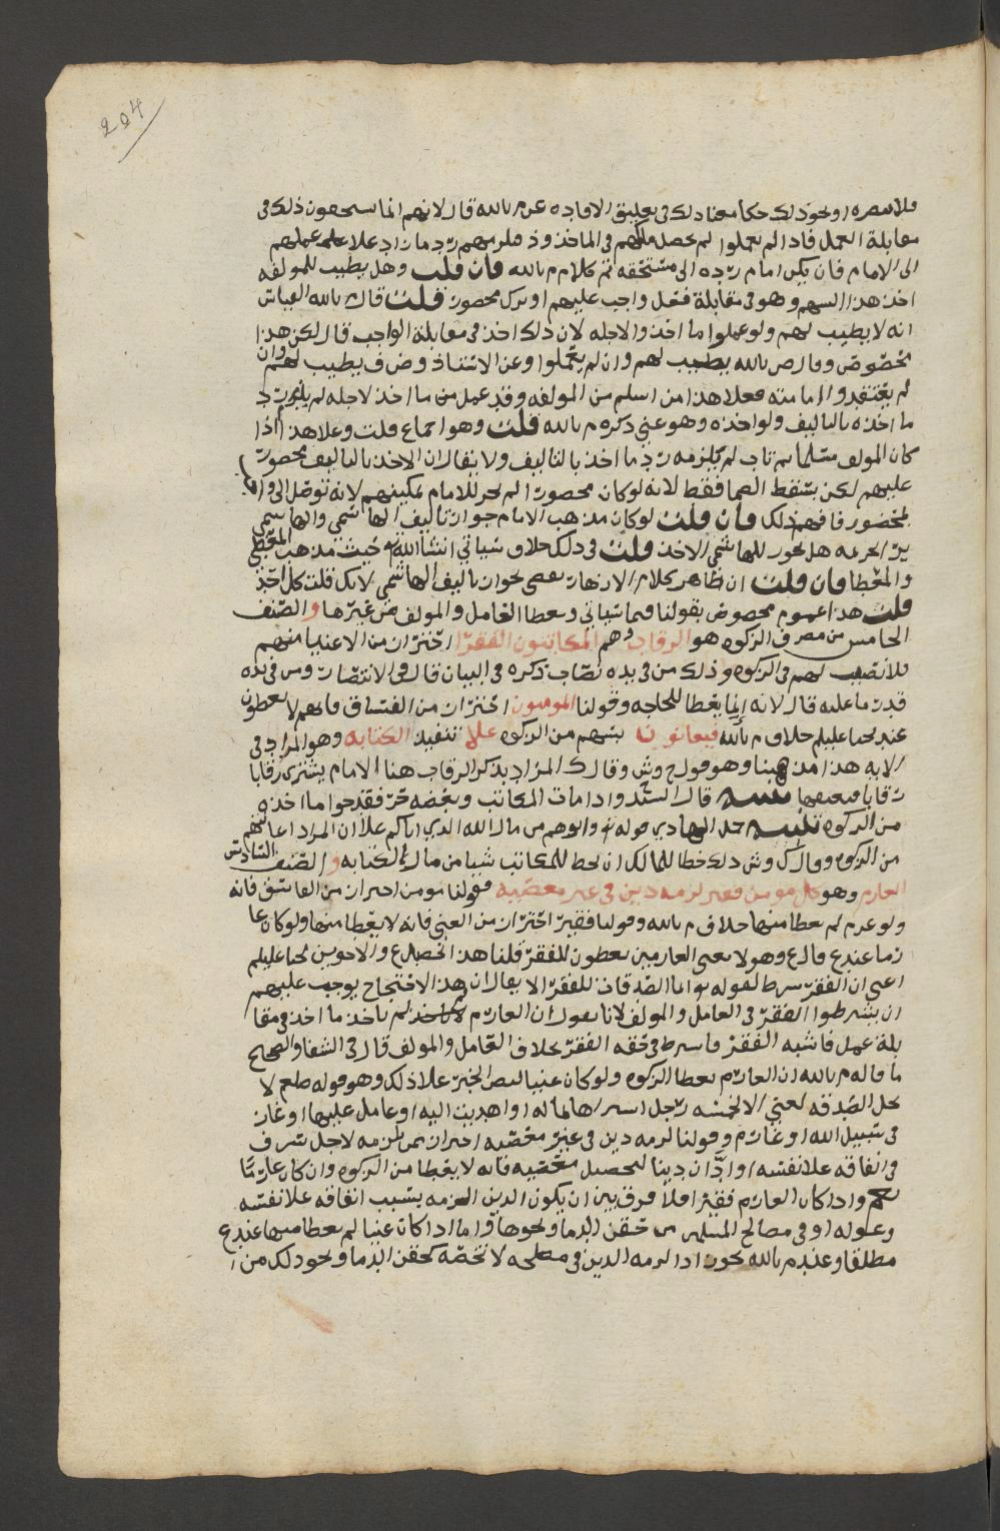 204
ونحو ذلك حكا معنا ذلك في تعليق الافاده عن م بالله قال لانهم انما يستحقون ذلك في
مقابلة العمل فاذا لم يعملوا لم يحصل ملكهم في الماخذ
الى الامام فان يكن امام رده الى مستحقه تم كلام م بالله فان قلت وهل يطيب للمولفه
اخذ هذا السهم وهو في مقابلة فعل واجب عليهم او ترك محصور قلت قال م بالله القياس
انه لا يطيب لهم ولو عملوا ما اخذوا لاجله لان ذلك اخذ في مقابلة الواجب قال لكن هذا
مخصوص وقال ص بالله يطيب لهم وان لم يعملوا وعن الاستاذ وض ف يطيب لهم وان
لم يعتقدوا امامته فعلا هذا من اسلم من المولفه وقد عمل من ما اخذ لاجله لم يلزمه رد
ما اخذه بالتاليف ولو اخذه وهو غني ذكره م بالله قلت وهو اجماع قلت وعلا هذا اذا
كان المولف مسلما ثم تاب لم يلزمه رد ما اخذ بالتاليف ولا يقال ان الاخذ بالتاليف محصور
عليهم لكن يسقط فقط لانه لو كان محصورا لم يجز للامام تمكينهم لانه توصل الى
المحضور فافهم ذلك فان قلت لو كان مذهب الامام جواز تاليف الهاشمي والهاشمي
يرا تحريمه هل يجوز للهاشمي الاخذ قلت في ذلك خلاف سياتي انشا الله تع حيث مذهب المعطي
والمعطا فان قلت ان ظاهر كلام الازهار يقضي بجواز تاليف الهاشمي لانك قلت كل احد
قلت هذا عموم مخصوص بقولنا فيما سياتي ويعطا العامل والمولف من غيرها و الصنف
الخامس من مصرف الزكوه هو الرقاب وهم المكاتبون الفقرا احترازا من الاغنيا منهم
فلا نصيب لهم في الزكوه وذلك من في يده نصاب ذكره في البيان قال في الانتصار ومن في يده
قدر ما عليه قال لانه انما يعطا للحاجه وقولنا المومنون احترازا من الفساق فانهم لا يعطون
عند يحيا عليلم خلاف م بالله فيعانون بسهم من الزكوه علا تنفيذ الكتابه وهو المراد في
الايه هذا مذهبنا وهو قول ح وش وقال ك المراد بذكر الرقاب هنا الامام يشتري رقابا
رقابا فيعتقها تنبيه قال السيد واذا مات المكاتب وبعضه حر فقد حوا ما اخذه
من الزكوه تنبيه حمل الهادي قوله تع واتوهم من مال الله الذي اتاكم علا ان المراد اعانتهم
من الزكوه وقال ك وش ذلك خطا للمالك ان يحط للمكاتب شيا من مال الكتابه و الصنف السادس
الغارم وهو كل مومن فقير لزمه دين في غير معصيه فقولنا مومن احترازا من الفاسق فانه
ولو غرم لم يعطا منها خلاف م بالله وقولنا فقير احترازا من الغني فانه لا يعطا منها ولو كان غا
رما عند ع قال ع وهولا يعني الغارمين يعطون للفقر قلنا هذا الاخوين ليحيا عليلم
اعني ان الفقر شرط لقوله تع انما الصدقات للفقرا لا يقال ان هذا الاحتجاج يوجب عليهم
ان يشرطوا الفقر في العامل والمولف لانا نقول ان الغارم لم ياخذ ما اخذ في مقا
بلة عمل فاشبه الفقير فاشرط في حقه الفقر بخلاف العامل والمولف قال في الشفا والصحيح
ما قاله م بالله ان الغارم يعطا الزكوه ولو كان غنيا لنص الخبر علا ذلك وهو قوله صلعم لا
تحل الصدقه لغني الا لخمسه رجل اشتراها بماله او اهديت اليه او عامل عليها او غاز
في سبيل الله او غارم وقولنا لزمه دين في غير معصيه احترازا ممن لزمه لاجل سرف
في انفاقه علا نفسه او ادان دينا لتحصيل معصيه فانه لا يعطا من الزكوه وان كان غارما
نعم واذا كان الغارم فقيرا فلا فرق بين ان يكون الدين لزمه بسبب انفاقه علا نفسه
وعوله او في مصالح المسلمين من حقن الدما ونحوها واما اذا كان غنيا لم يعطا منها عند ع
مطلقا وعند م بالله يجوز اذا لزمه الدين في مصلحه لا تخصه كحقن الدما ونحو ذلك من ا